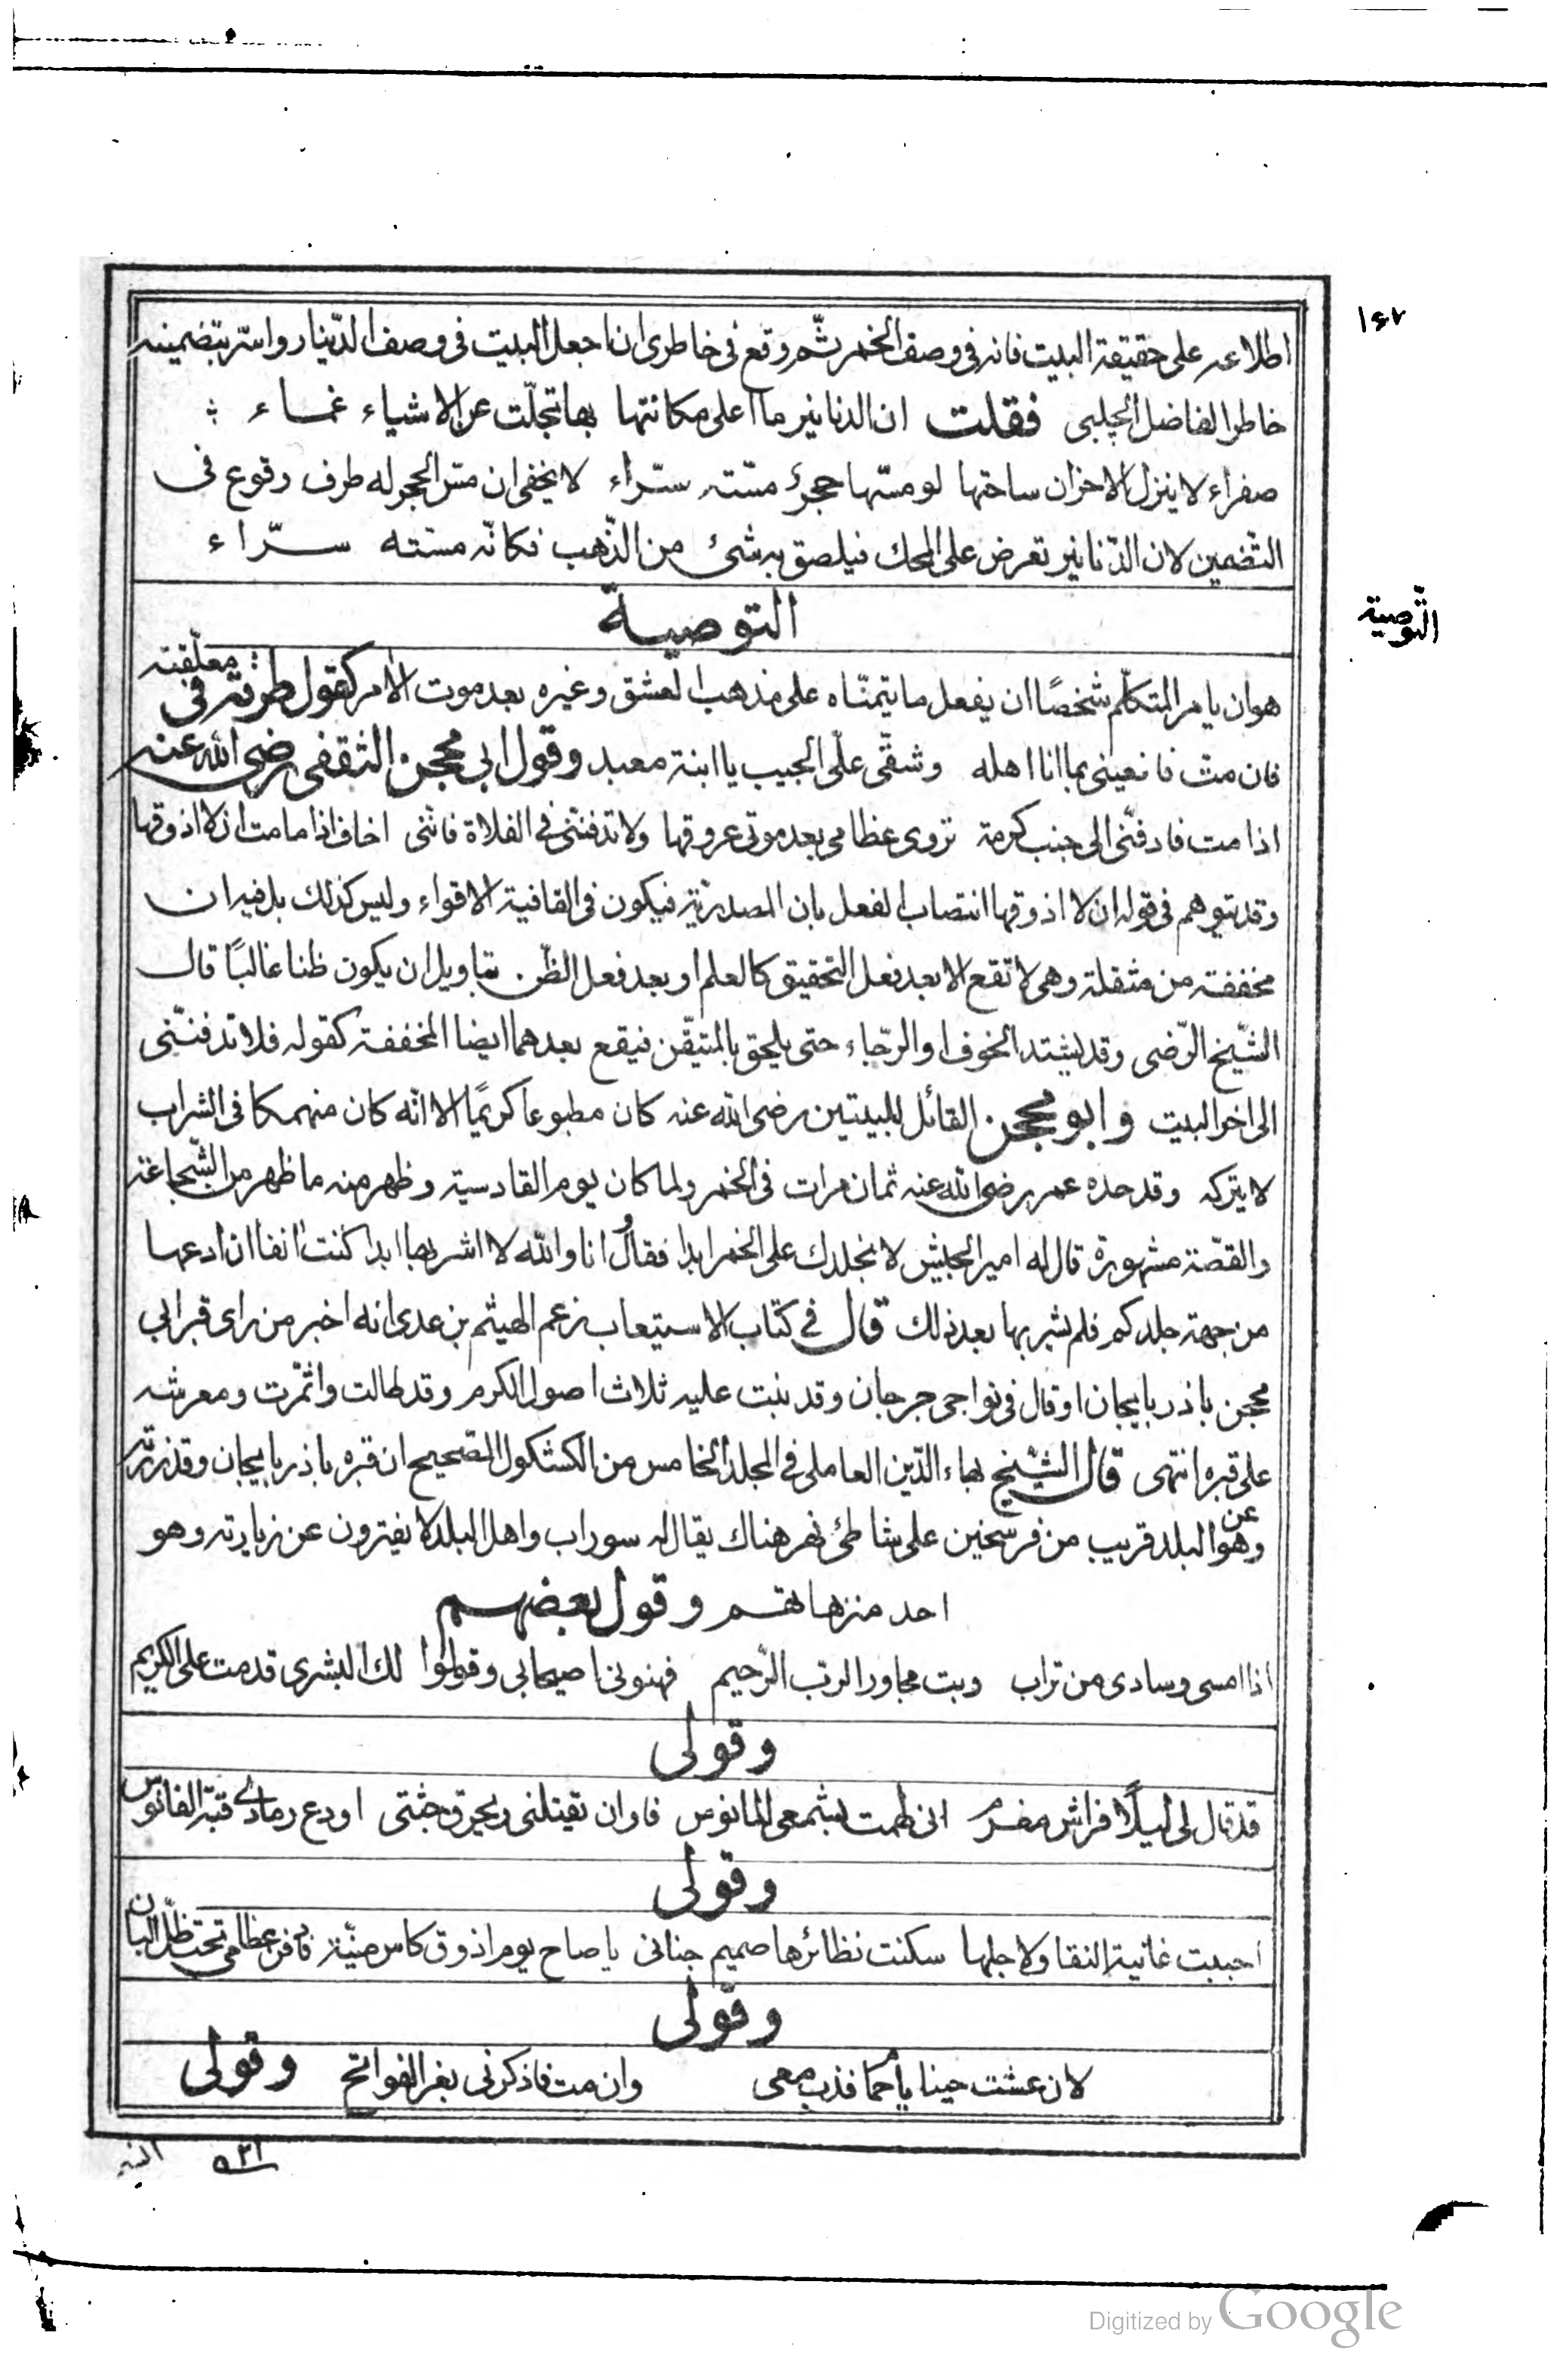 ١٤٧
اطلاعه على حقيقة البيت فانه فى وصف الخمر ثم وقع فى خاطرى ان اجعل البيت فى وصف الدّينار واسرّ بتضمينه
خاطر الفاضل الچلبى فقلت ان الدنانير ما اعلى مكانتها بها تجلّت عن الاشياء غماء
صفراء لا ينزل الاحزان ساحتها لو مسّها حجر مسّته سرّاء لا يخفى ان مسّ الحجر له طرف وقوع فى
التّضمين لان الدّنانير تعرض على المحك فيلصق به شئ من الذّهب فكانّه مسّته سرّاء
التوصية
التّوصية
هو ان يامر المتكلّم شخصًا ان يفعل ما يتمنّاه على مذهب العشق وغيره بعد موت الآمر كقول طرفة فى معلّقته
فان مت فانعينى بما انا اهله وشقّى علىّ الجيب يا ابنة معبد وقول ابي محجن الثقفى رضى الله عنه
اذا مت فادفنّى الى جنب كرمة تروى عظامى بعد موتى عروقها ولا تدفننّى فى الفلاة فانّنى اخاف اذا ما مت ان لا اذوقها
وقد يتوهم فى قوله ان لا اذوقها انتصاب الفعل بان المصدرية فيكون فى القافية الاقواء وليس كذلك بل فيه ان
مخففة من مثقلة وهى لا تقع الا بعد فعل التحقيق كالعلم او بعد فعل الظّن بتاويل ان يكون ظنا غالبًا قال
الشّيخ الرّضى وقد يشتد الخوف او الرّجاء حتى يلحق بالمتيقّن فيقع بعدهما ايضا المخففة كقوله فلا تدفننّى
الى اخر البيت وابو محجن القائل للبيتين رضى الله عنه كان مطبوعا كريمًا الا انّه كان منهمكا فى الشراب
لا يتركه وقد حده عمر رضى الله عنه ثمان مرات فى الخمر ولما كان يوم القادسية وظهر منه ما ظهر من الشّجاعة
والقصّة مشهورة قال له امير الجيش لا نجلدك على الخمر ابدا فقال وانا والله لا اشربها ابدا كنت انفا ان ادعها
من جهة جلدكم فلم يشربها بعد ذلك قال فى كتاب الاستيعاب زعم الهيثم بن عدى انه اخبر من راى قبر ابي
محجن باذربايجان او قال فى نواحى جرجان وقد نبت عليه ثلاث اصول الكرم وقد طالت واثمرت ومعرشه
على قبره انتهى قال الشّيخ بهاء الدّين العاملى فى المجلد الخامس من الكشكول الصّحيح ان قبره باذربايجان وقد زرته
وهو عن البلد قريب من فرسخين على شاطئ نهر هناك يقال له سوراب واهل البلد لا يفترون عن زيارته وهو
احد منزهاتهم وقول بعضهم
اذا امسى وسادى من تراب وبت مجاور الرب الرّحيم فهنونى اصيحابي وقولوا لك البشرى قدمت على الكريم
وقولى
قد قال لى ليلًا فراش مغرم انى طمت بشمعى المانوس فاوان تقتلنى ويحرق جثتى اودع رمادى قبّة الفانوس
وقولى
احببت غانية النقا ولاجلها سكنت نظائرها صميم جنانى يا صاح يوم اذوق كاس منيّة فادفن عظامى تحت ظلّ البان
وقولى
لان عشت حينا يا حما فذب معى وان مت فاذكرنى بغر الفواتح وقولى
Digitized by Google